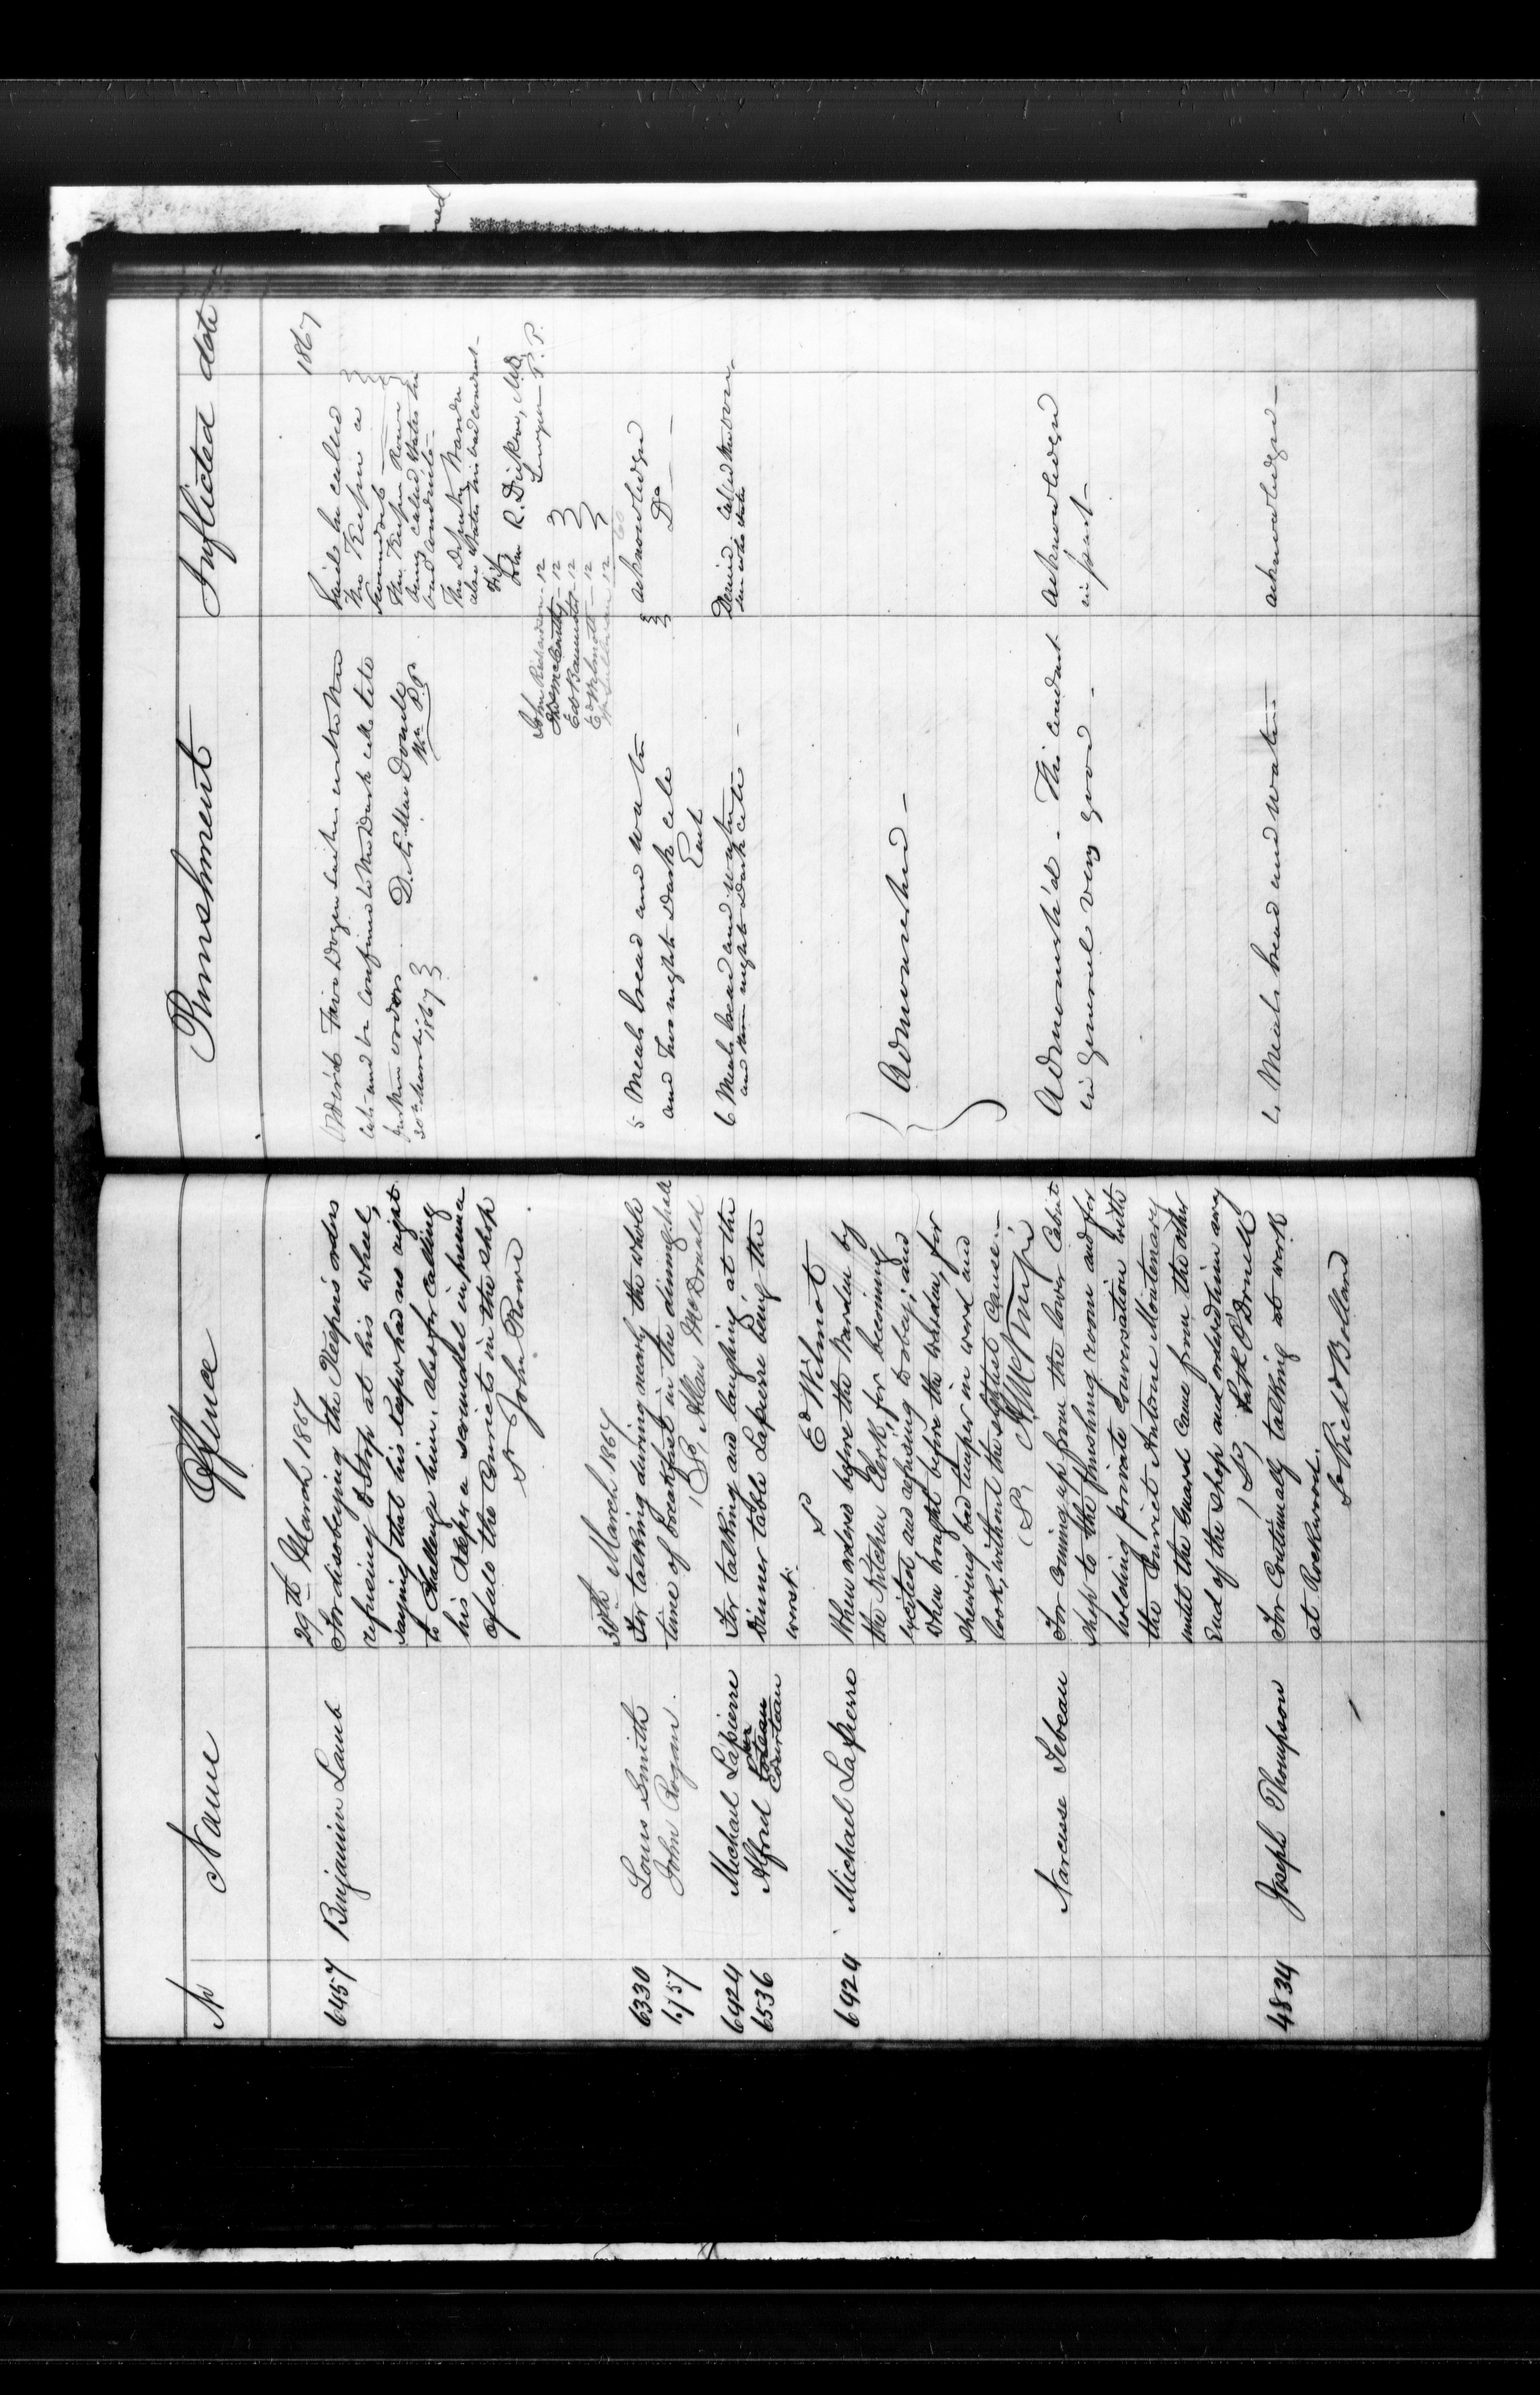 No Name Offence Punishment Inflicted date
29th March 1867
1867
6457 Benjamin Lamb
For disobeying the Keeper's orders
refusing to stop at his wheel,
saying that his Keeper had no right
to Challenge him. also for calling
his Keeper a scoundrel in presence
of all the Convicts in the shop
S John Rowe
Order'd Five Dozen with
Cats and be confined to the Dark cell to
further orders
30th March 1867
D. Æ. MacDonell
Wn P.P.
Said he called
the Keeper a
scoundrel
The Keeper Rowe
being called states his
bad conduct
The Deputy Warden
also states his bad conduct
John R. Dickson, M.D.
Surgeon P.P.
John Richardson 12
McCarthy 12
Ed Bannister 12
Ed Wilmott 12
Sullivan 12
60
30th March 1867
6330 Louis Smith
6157 John Rogan.
For talking during nearly the whole
time of breakfast in the dining hall
(S) Allan McDonald
5 Meals bread and water
and two nights Dark cell
Each
acknowledged
Do
6424 Michael Lapierre
6536 Alfred Courteau
For talking and laughing at the
Dinner table Lapierre being the
worst.
S Ed Wilmot
6 Meals bread and water
and nights Dark cell
6424 Michael Lapierre
When ordered before the Warden by
the Kitchen Clerk, for becoming
excited and refusing to obey; and
when brought before the warden, for
shewing bad temper in word and
look, without the slightest cause.
(S)
Admonished
Narcisse Lebeau
For coming up from the lower Cabinet
shop to the finishing room and for
holding private conversation with
the Convict Antoine Montenary
until the Guard came from the other
end of the shop and ordered him away
(S) Patk O'Donnell
Admonish'd. This conduct
in general very good
acknowledged
in part
4834 Joseph Thompson
For Continually talking at work
at Rockwood.
S Richd Bolland
Meals bread and water
acknowledged